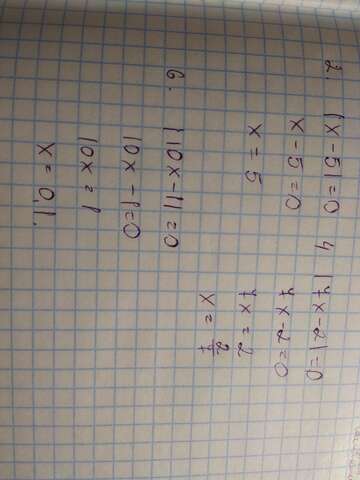 2. |x-5|=0
x-5=0
x=5
4 |7x-2|=0
7x-2=0
7x=2
x=2/7
6. |10x-1|=0
10x-1=0
10x=1
x=0,1.